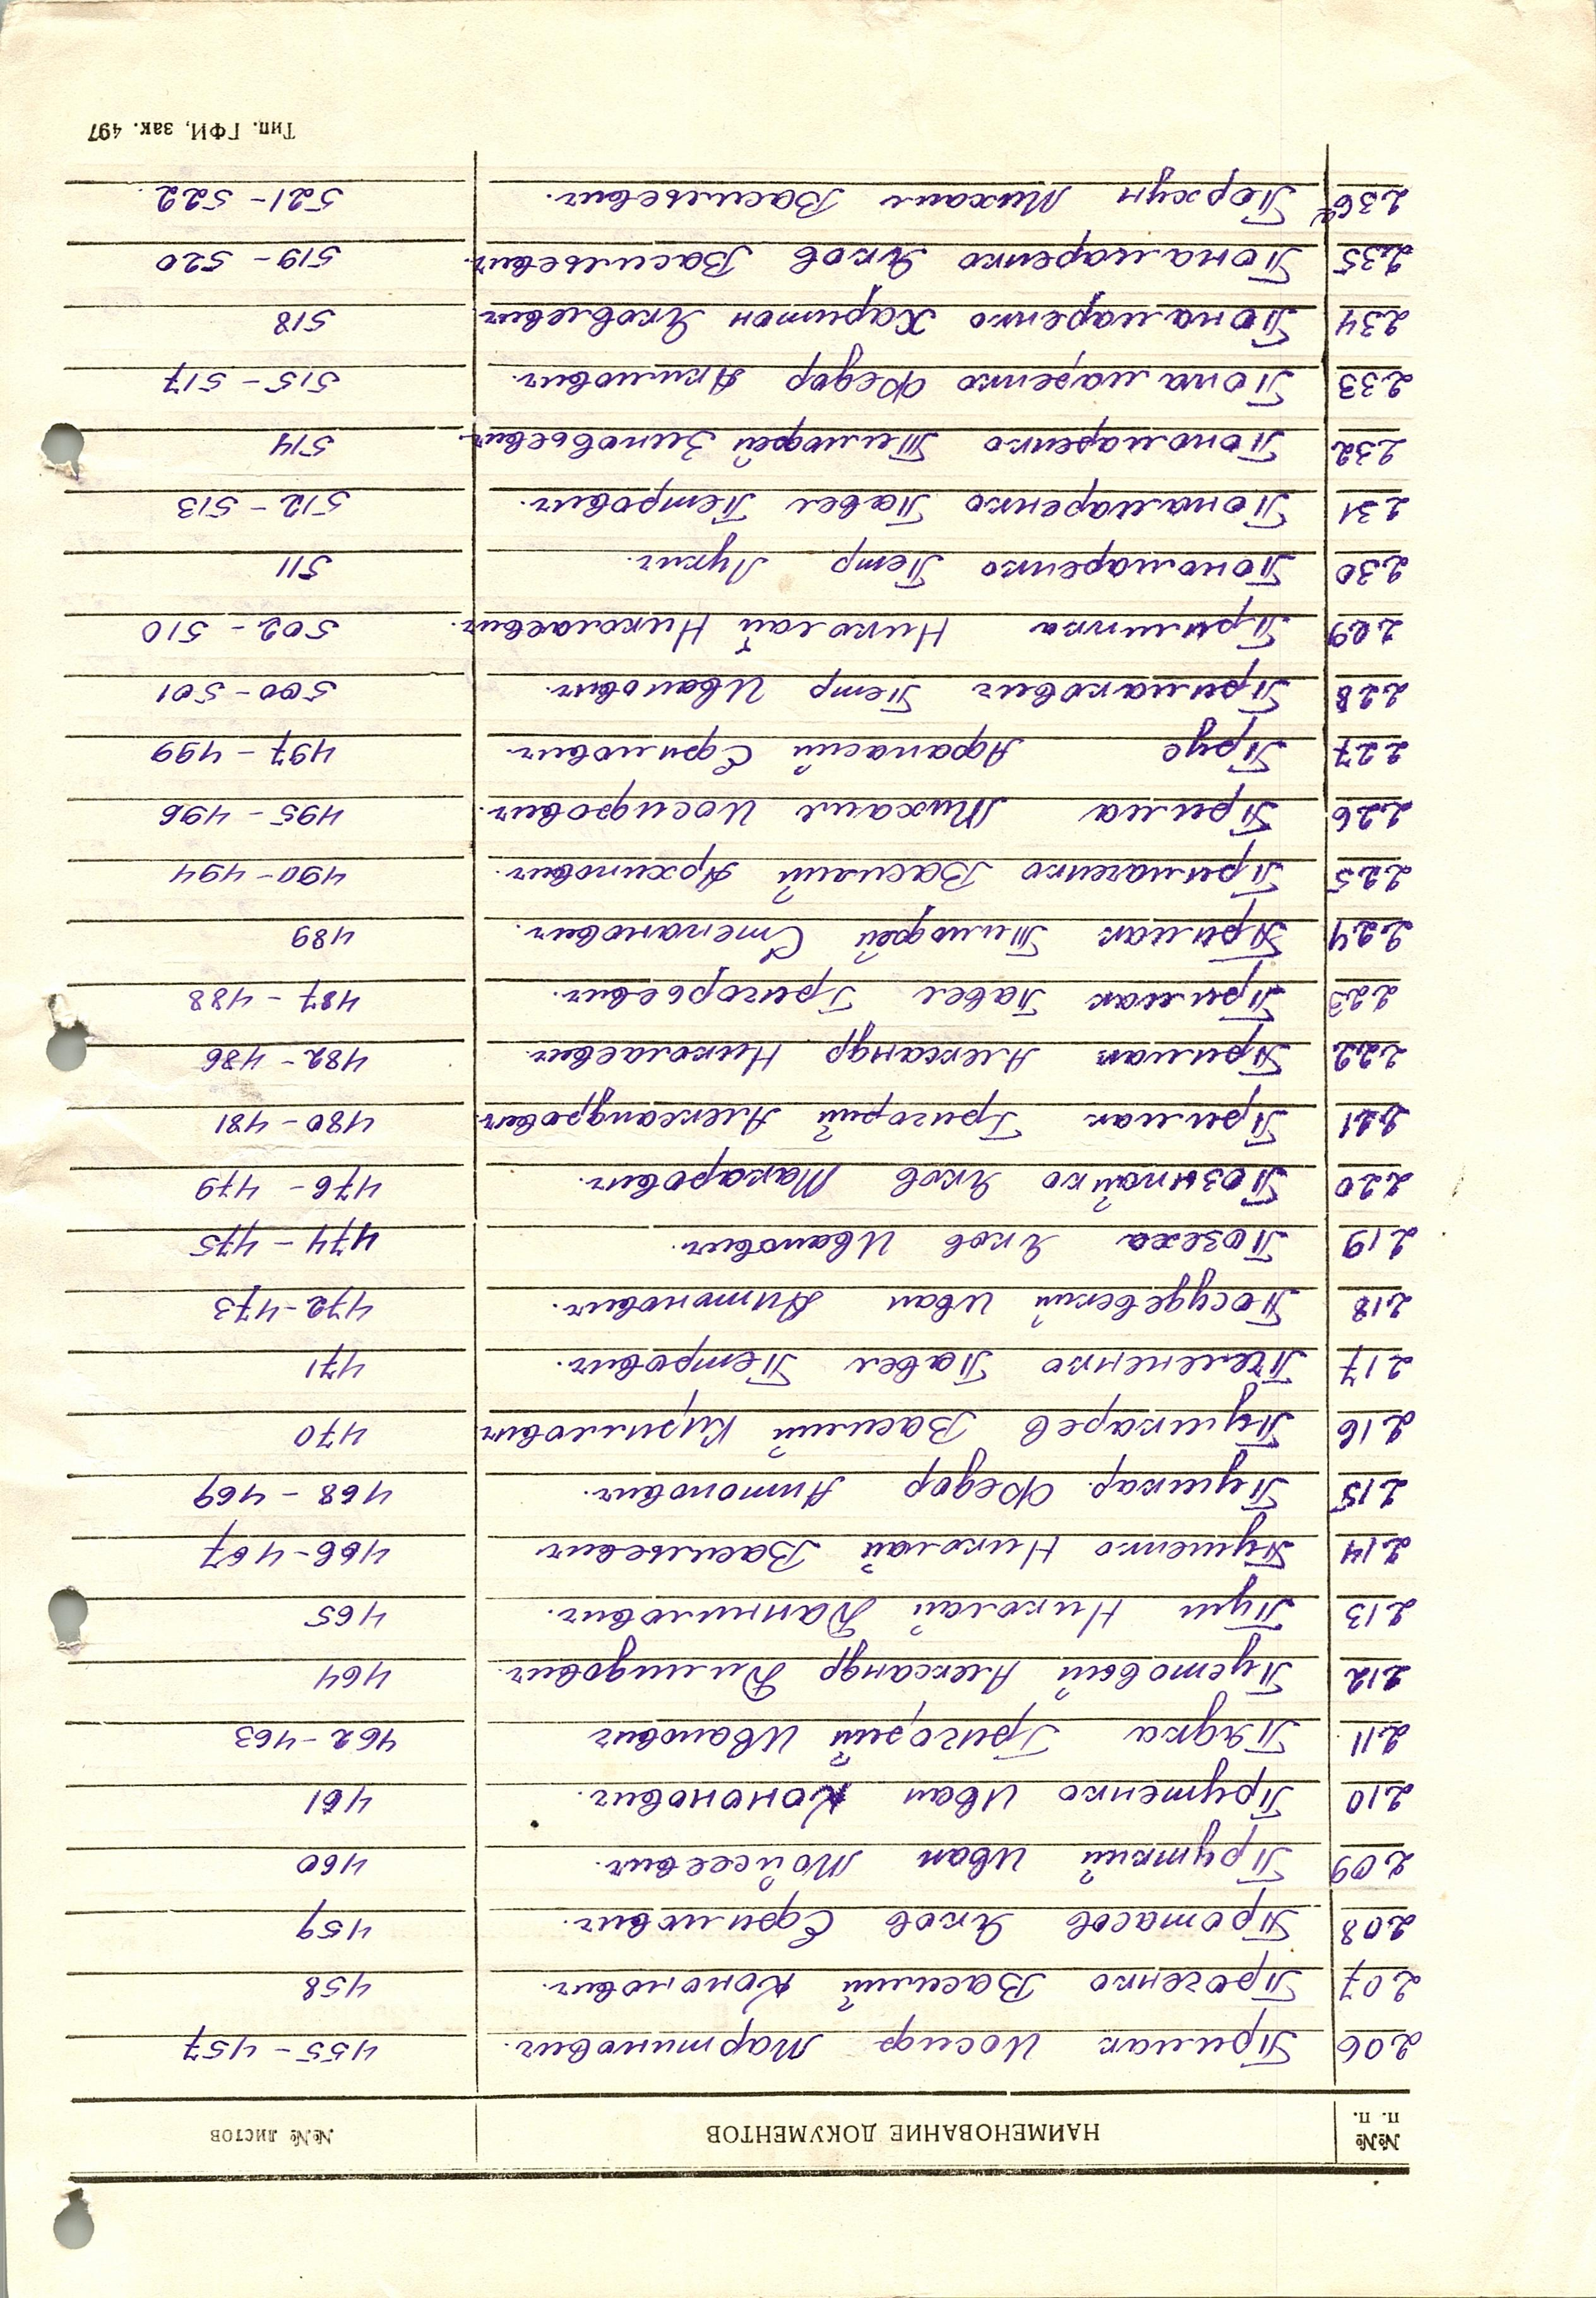 №№ п. п. НАИМЕНОВАНИЕ ДОКУМЕНТОВ №№ листов
206 Примак Иосиф Мартинович. 455 - 457
207 Проченко Василий Кононович. 458
208 Протасов Яков Ефимович. 459
209 Пруткий Иван Мойсеевич. 460
210 Прутенко Иван Кононович. 461
211 Пядка Григорий Иванович 462 - 463
212 Пустовый Александр Демидович. 464
213 Пуш Николай Данилович. 465
214 Пушенко Николай Васильевич 466 - 467
215 Пушкар. Федор Антонович. 468 - 469
216 Пушкарев Василий Кириллович 470
217 Пелепенко Павел Петрович. 471
218 Посудевский Иван Антонович. 472 - 473
219 Позеха Яков Иванович. 474 - 475
220 Позынайко Яков Макарович. 476 - 479
221 Примак Григорий Александрович. 480 - 481
222 Примак Александр Николаевич. 482 - 486
223 Примак Павел Григорьевич. 487 - 488
224 Примак Тимофей Степанович. 489
225 Примаченко Василий Архипович. 490 - 494
226 Прима Михаил Иосифович. 495 - 496
227 Прус Афанасий Ефимович. 497 - 499
228 Примакович Петр Иванович. 500 - 501
229 Примипка Николай Николаевич. 502 - 510
230 Пономаренко Петр Лукич. 511
231 Понамаренко Павел Петрович. 512 - 513
232 Пономаренко Тимофей Зиновьевич. 514
233 Понамаренко Федор Акимович. 515 - 517
234 Понамаренко Харитон Яковлевич 518
235 Понамаренко Яков Васильевич. 519 - 520
236 Поржун Михаил Васильевич. 521 - 522.
Тип. ГФИ, зак. 497